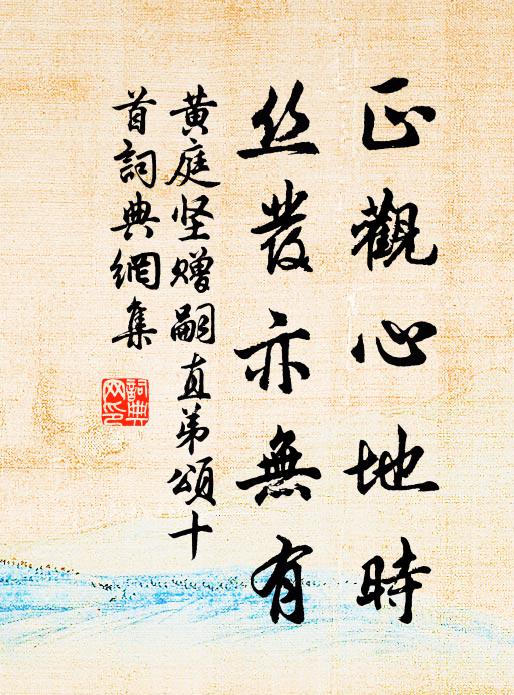 正觀心地時
丝發亦無有
黄庭坚贈嗣直弟頌十
首詞典網集
詞典
网印